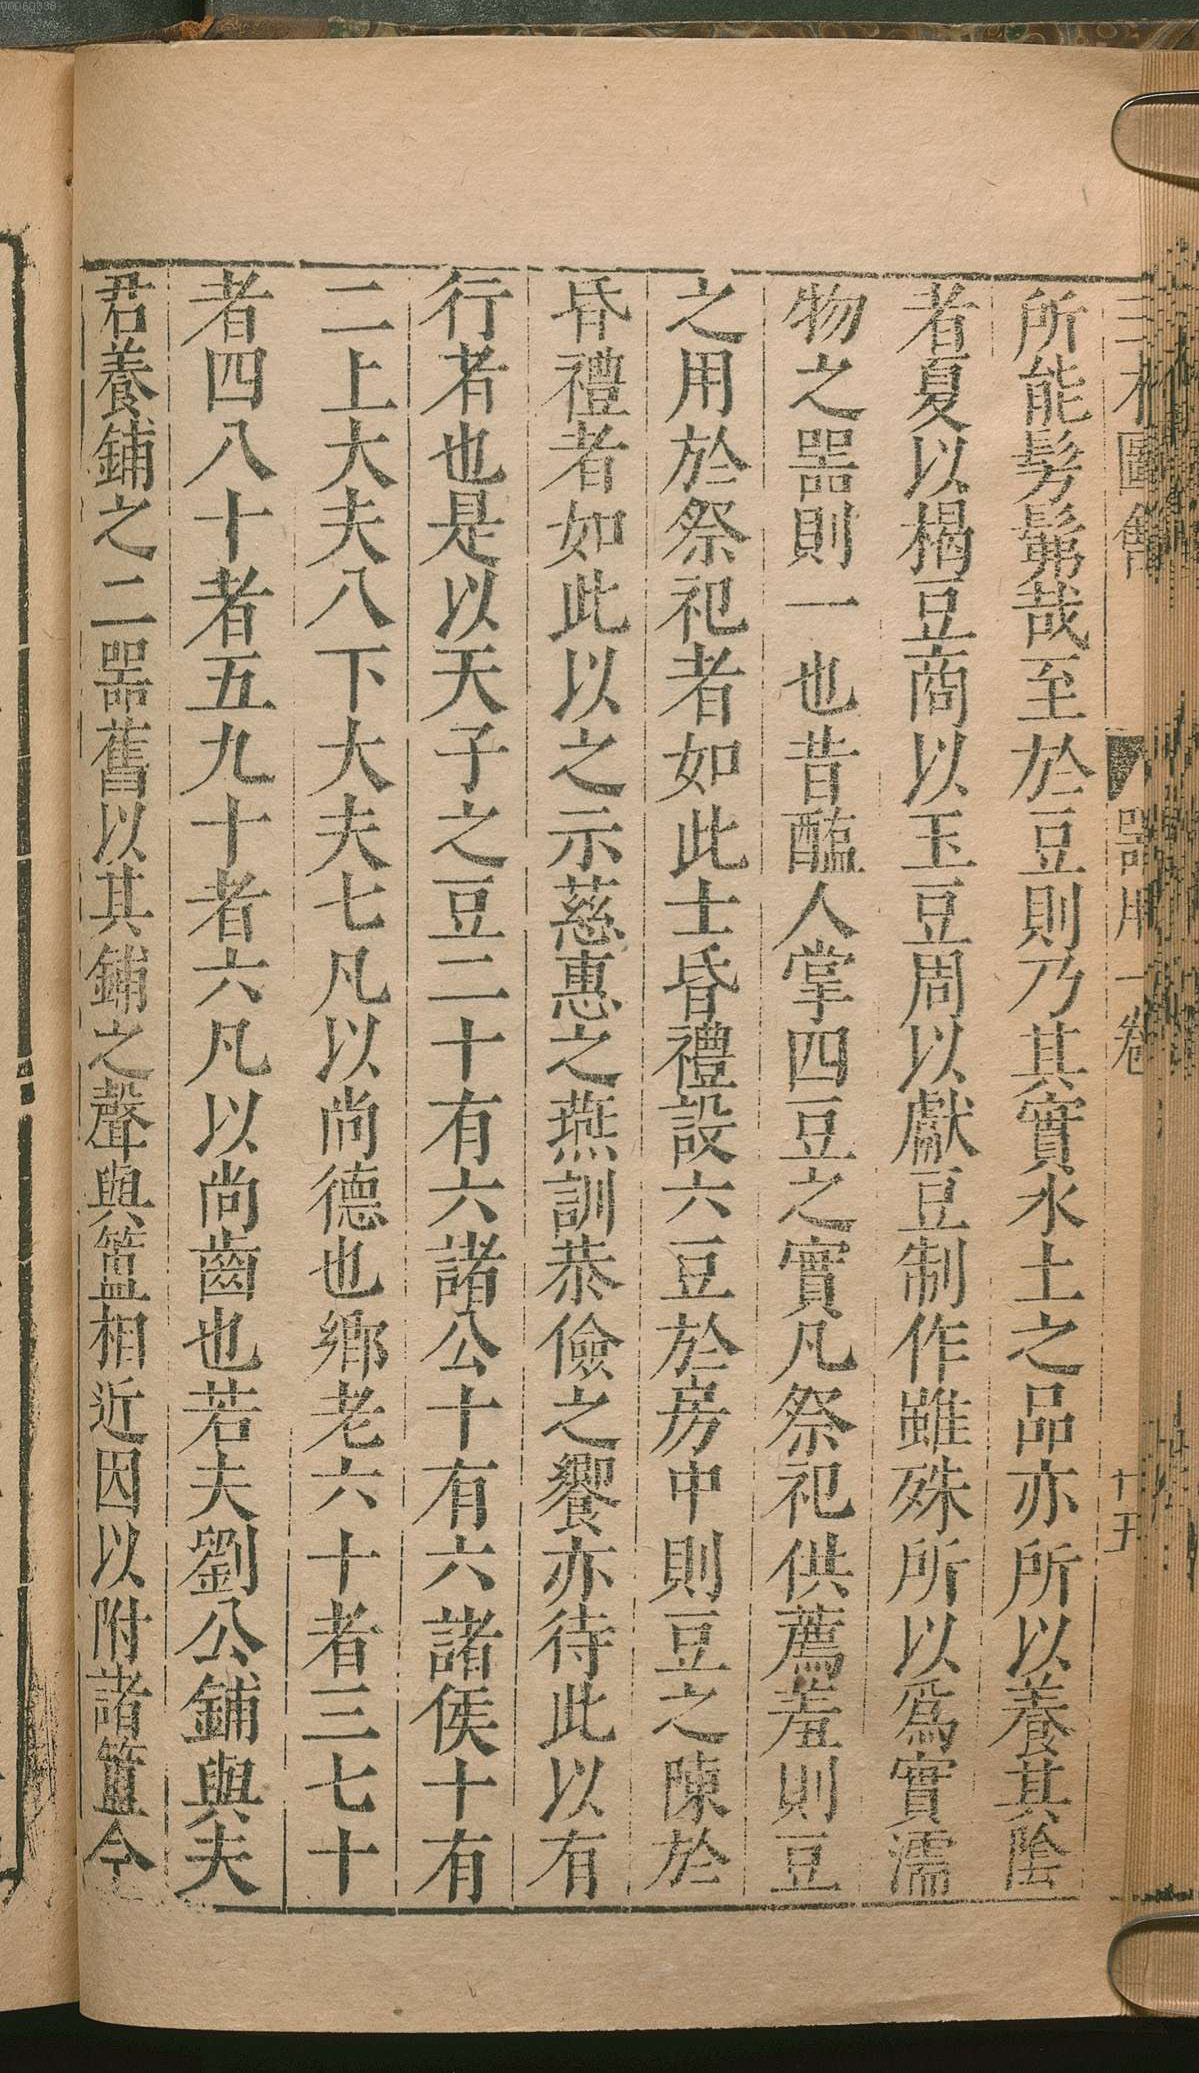 三才圖會 器用一卷 十五
所能髣髴哉至於豆則乃其實水土之品亦所以養其陰
者夏以楬豆商以玉豆周以獻豆制作雖殊所以爲實濡
物之噐則一也昔醢人掌四豆之實凡祭祀供薦羞則豆
之用於祭祀者如此士昏禮設六豆於房中則豆之陳於
昏禮者如此以之示慈惠之燕訓恭儉之饗亦待此以有
行者也是以天子之豆二十有六諸公十有六諸侯十有
二上大夫八下大夫七凡以尚德也鄉老六十者三七十
者四八十者五九十者六凡以尚齒也若夫劉公鋪與夫
君養鋪之二噐舊以其鋪之聲與簠相近因以附諸簠今